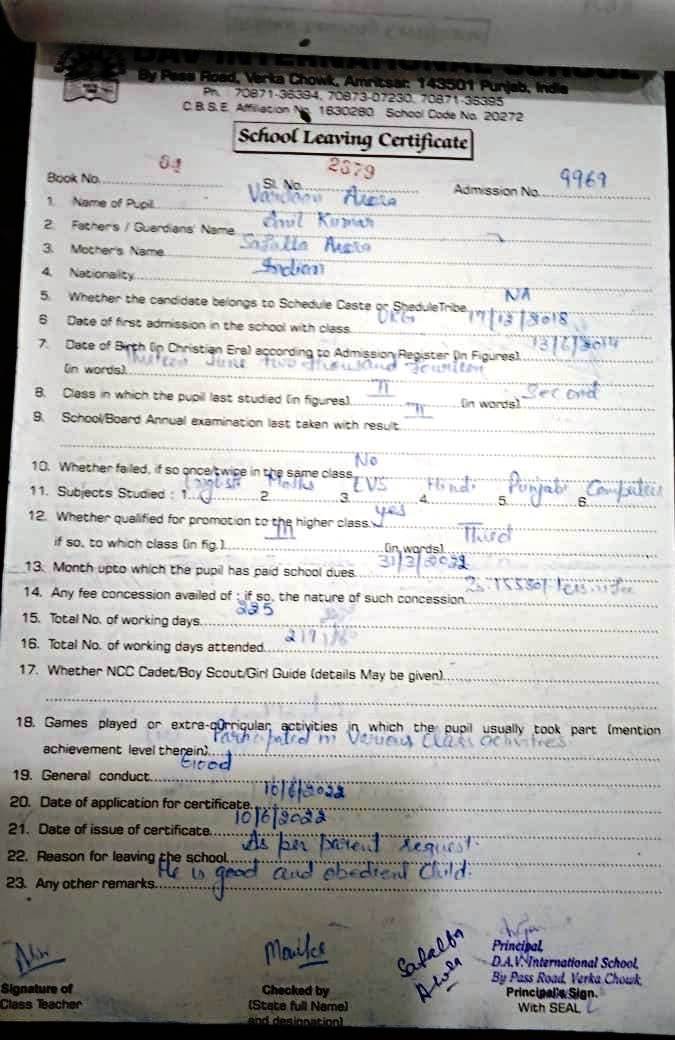 DAV INTERNATIONAL SCHOOL
By Pass Road, Verka Chowk, Amritsar. 143501 Punjab, India
Ph. 70871-36394, 70873-07230, 70871-36395
C.B.S.E. Affiliation No. 1630280 School Code No. 20272
School Leaving Certificate
Book No. Sl. No. 2379 Admission No. 9969
1. Name of Pupil Arora
2. Father's / Guardians' Name Anil Kumar
3. Mother's Name Safalta Arora
4. Nationality Indian
5. Whether the candidate belongs to Schedule Caste or SheduleTribe NA
6 Date of first admission in the school with class UKG 17/12/2018
7. Date of Birth (in Christian Era) according to Admission Register (in Figures) 13/6/2014
(in words) Thirteen June two thousand fourteen
8. Class in which the pupil last studied (in figures) II (in words) Second
9. School/Board Annual examination last taken with result II
10. Whether failed, if so once/twice in the same class No
11. Subjects Studied : 1. English 2. Maths 3. EVS 4. Hindi 5. Punjabi 6. Computer
12. Whether qualified for promotion to the higher class yes
if so, to which class (in fig.) III (in words) Third
13. Month upto which the pupil has paid school dues 31/3/2022
14. Any fee concession availed of : if so, the nature of such concession
15. Total No. of working days 225
16. Total No. of working days attended
17. Whether NCC Cadet/Boy Scout/Girl Guide (details May be given)
18. Games played or extra-curricular activities in which the pupil usually took part (mention
achievement level therein) Participated in Various Class activities
19. General conduct Good
20. Date of application for certificate 10/6/2022
21. Date of issue of certificate 10/6/2022
22. Reason for leaving the school As per parent request.
23. Any other remarks He is good and obedient Child.
Monika
Safalta
Arora
Principal,
D.A.V. International School,
By Pass Road, Verka Chowk
Signature of
Class Teacher
Checked by
(State full Name)
and designation)
Principal's Sign.
With SEAL